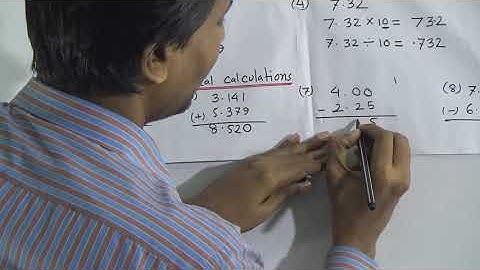 (4) 7.32
7.32 × 10 = 732
7.32 ÷ 10 = .732
calculations
3.141
(+) 5.379
8.520
(7) 4.00
- 2.25
5
1
(8) 7.
(-) 6.